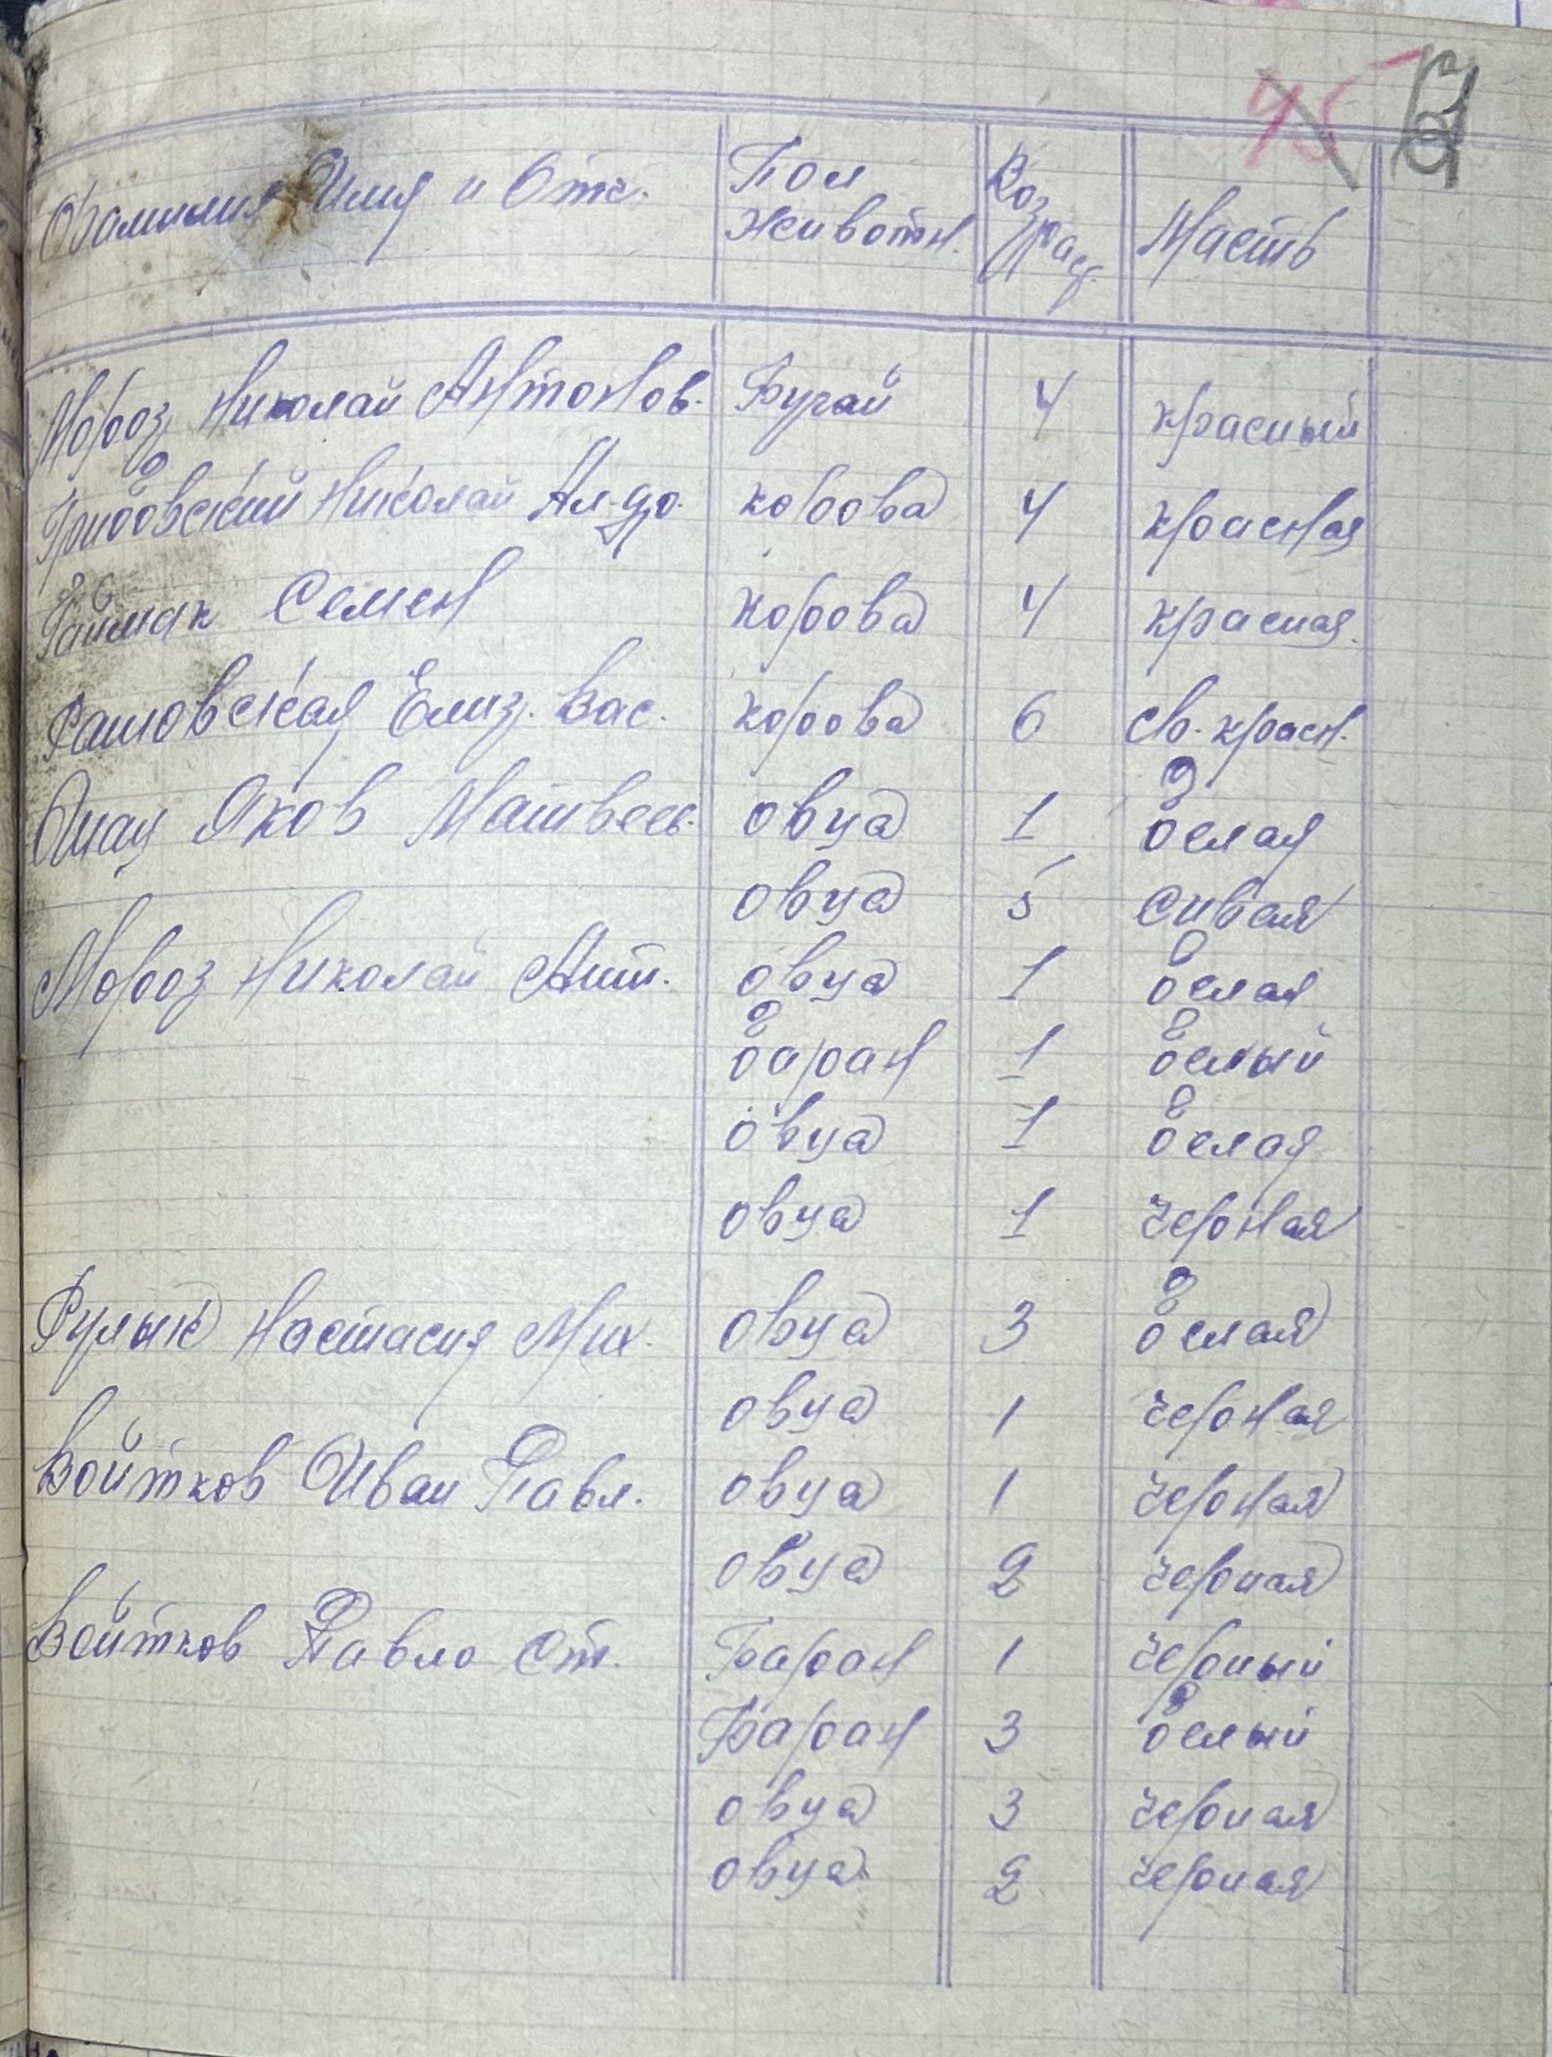 45
Фамилия Имя и Отч. Пол животн. Возраст. Масть
Мороз Николай Антонов. Бугай 4 красный
Грибовский Николай Ал-др. корова 4 красная
Гаймак Семен корова 4 красная
Рашовская Елиз. Вас. корова 6 св. красн.
Яков Матвеев. овца 1 белая
овца 5 сивая
Мороз Николай Ант. овца 1 белая
баран 1 белый
овца 1 белая
овца 1 черная
Настасия Мих. овца 3 белая
овца 1 черная
Войтков Иван Павл. овца 1 черная
овца 2 черная
Войтков Павло Ст. Баран 1 черный
Баран 3 белый
овца 3 черная
овца 2 черная